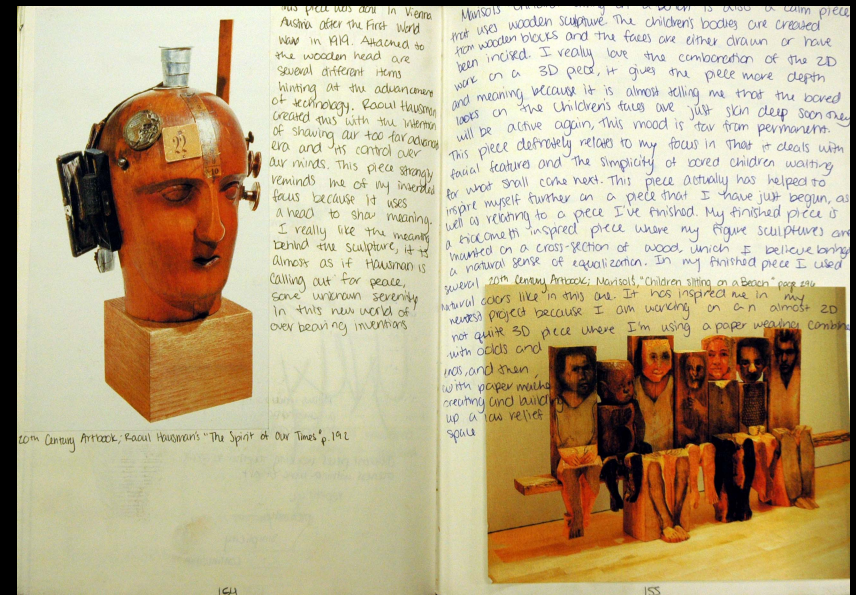 this piece was done in Vienna
Austria after the First World
War in 1919. Attached to
the wooden head are
several different items
hinting at the advancement
of technology. Raoul Hausman
created this with the intention
of showing our too far advanced
era and its control over
our minds. This piece strongly
reminds me of my intended
focus because it uses
a head to show meaning.
I really like the meaning
behind the sculpture, it is
almost as if Hausman is
calling out for peace,
some unknown serenity
in this new world of
over bearing inventions
22
20th Century Artbook; Raoul Hausman's "The Spirit of Our Times" p. 192
154
Marisol's Children Sitting on a Bench is also a calm piece
that uses wooden sculpture. The children's bodies are created
from wooden blocks and the faces are either drawn or have
been incised. I really love the combonation of the 2D
work on a 3D piece, it gives the piece more depth
and meaning because it is almost telling me that the bored
looks on the children's faces are just skin deep soon they
will be active again, this mood is far from permanent.
This piece definately relates to my focus in that it deals with
facial features and the simplicity of bored children waiting
for what shall come next. This piece actually has helped to
inspire myself further on a piece that I have just begun, as
well as relating to a piece I've finished. My finished piece is
a Giacometti inspired piece where my figure sculptures are
mounted on a cross-section of wood, which I believe brings
a natural sense of equalization. In my finished piece I used
several
20th Century Artbook; Marisol's, "Children sitting on a Bench" page 296
natural colors like in this one. It has inspired me in my
newest project because I am working on an almost 2D
not quite 3D piece where I'm using a paper weaving combined
with odds and
ends, and then,
with paper mache
creating and building
up a low relief
space
155